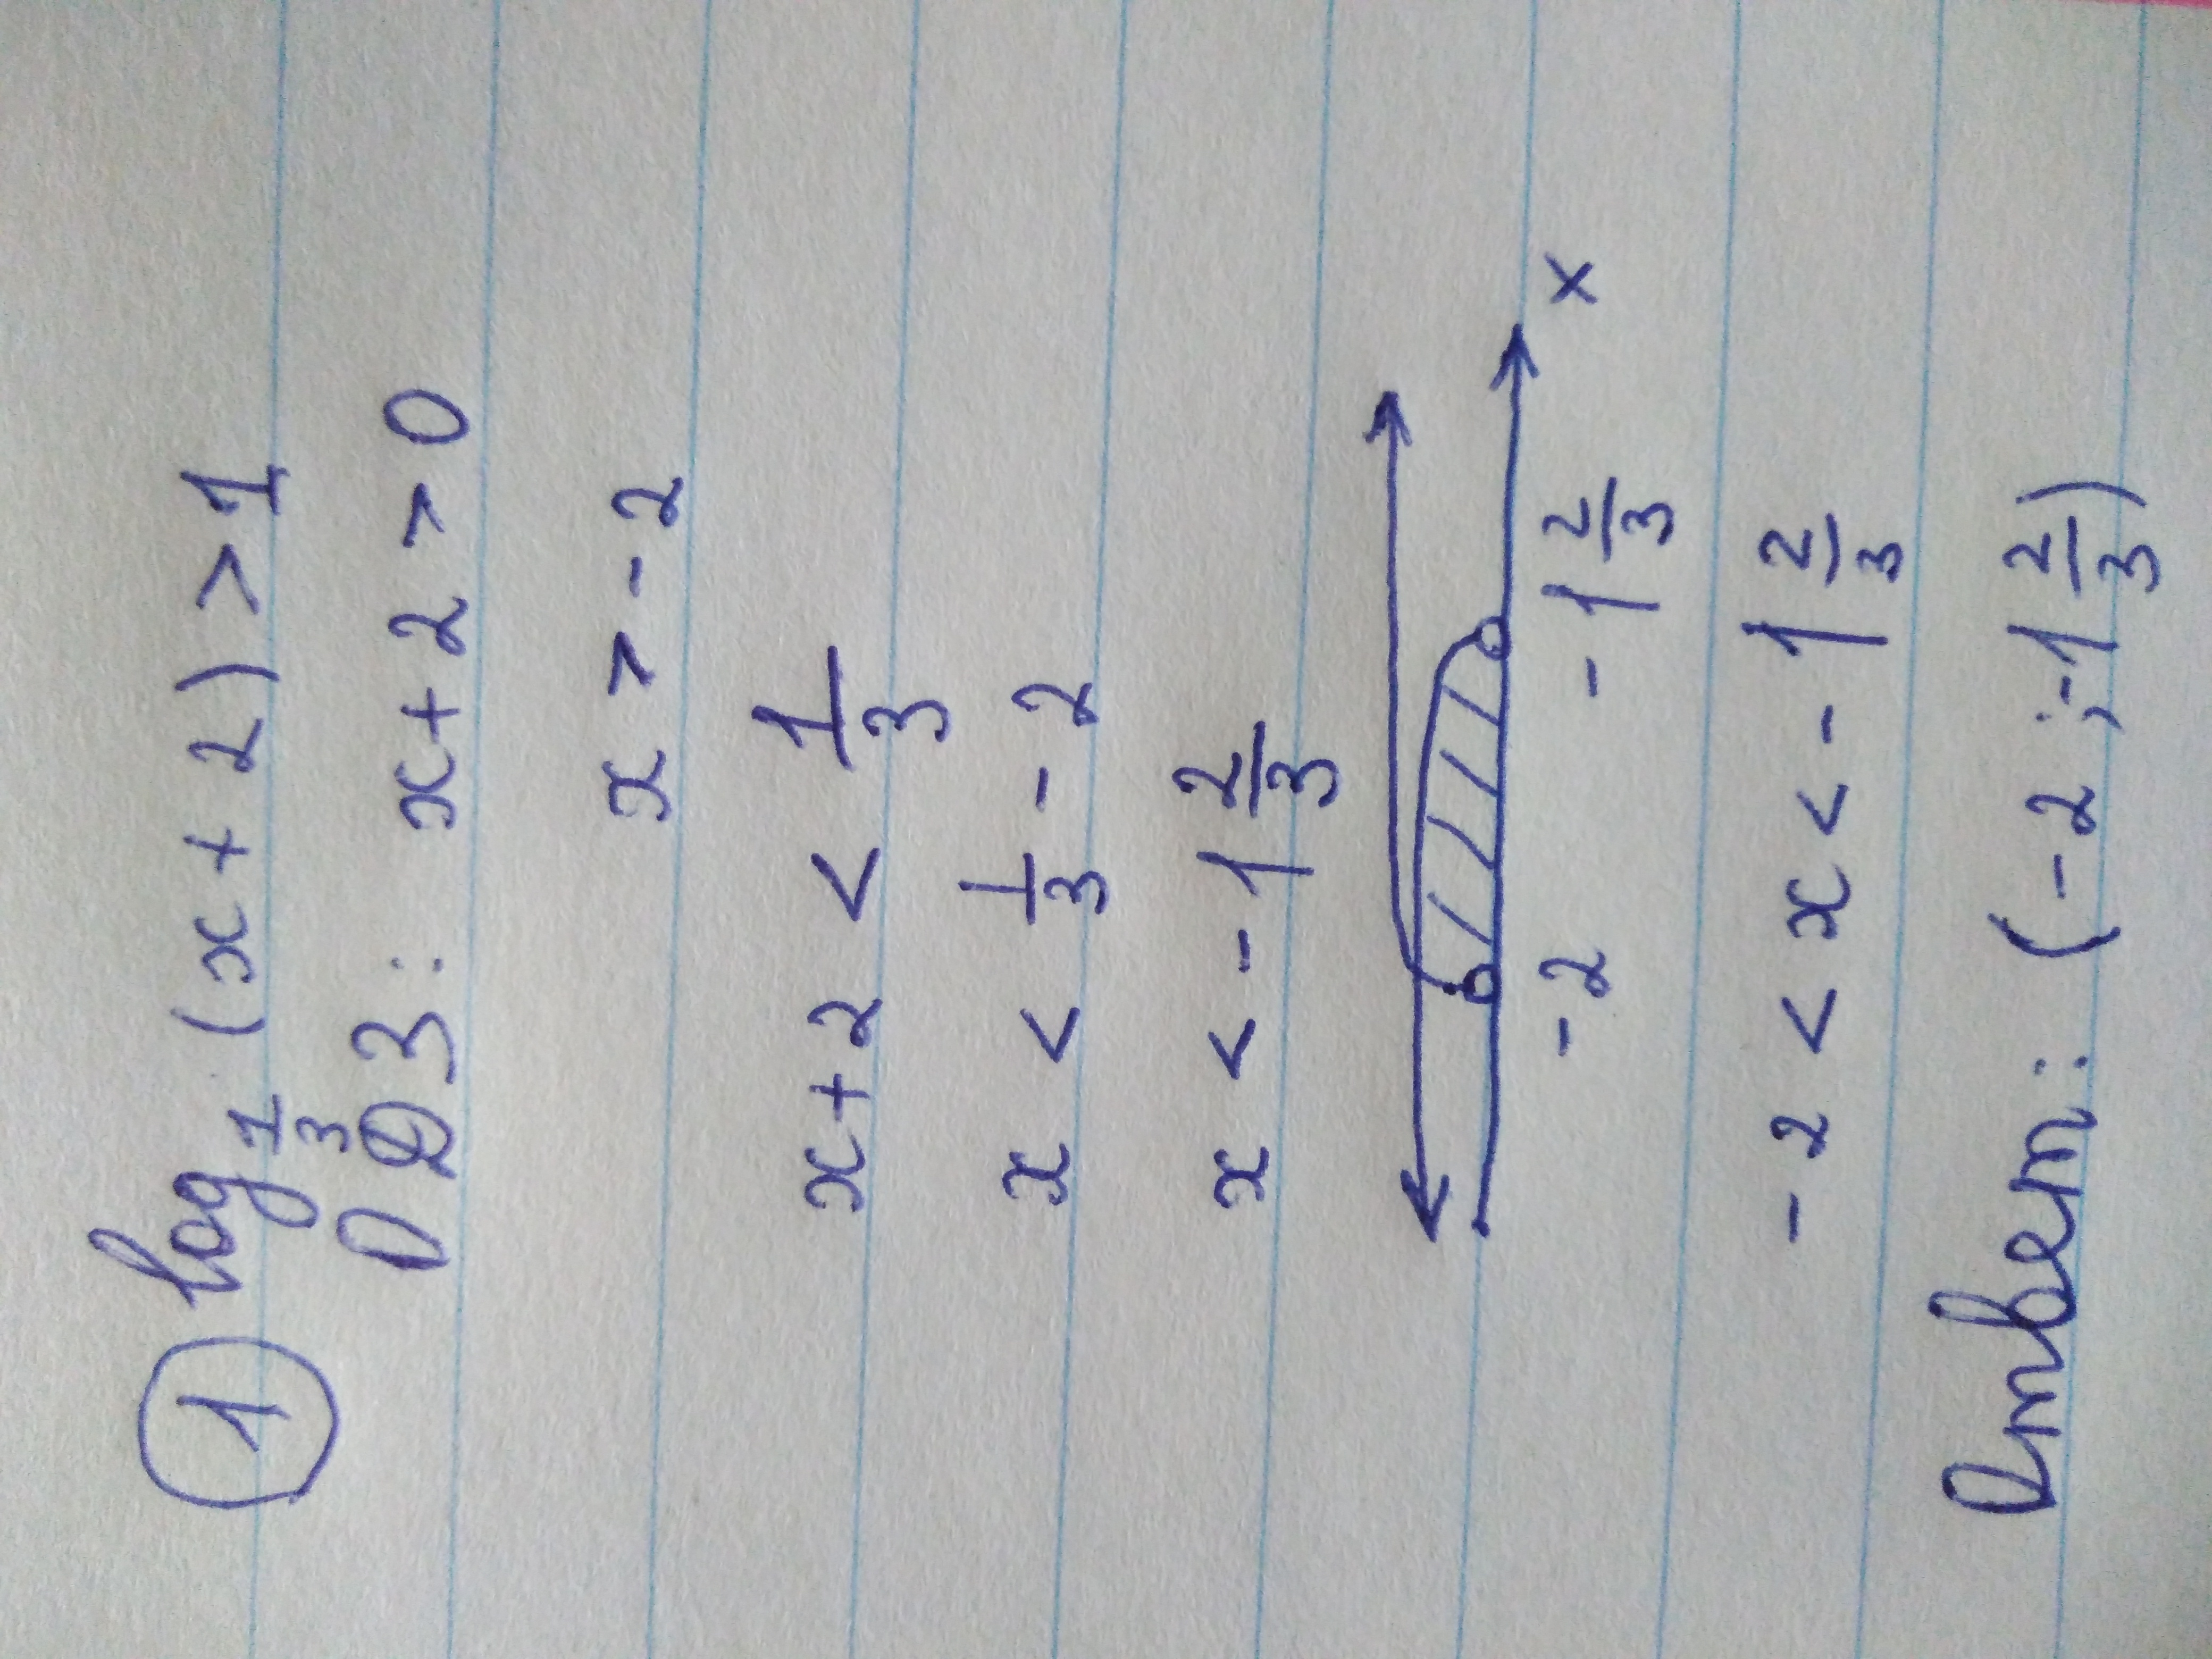 ① log 1/3 (x+2) > 1
ОДЗ: x+2 > 0
x > -2
x+2 < 1/3
x < 1/3 - 2
x < -1 2/3
x
-2 -1 2/3
-2 < x < -1 2/3
Ответ: (-2; -1 2/3)